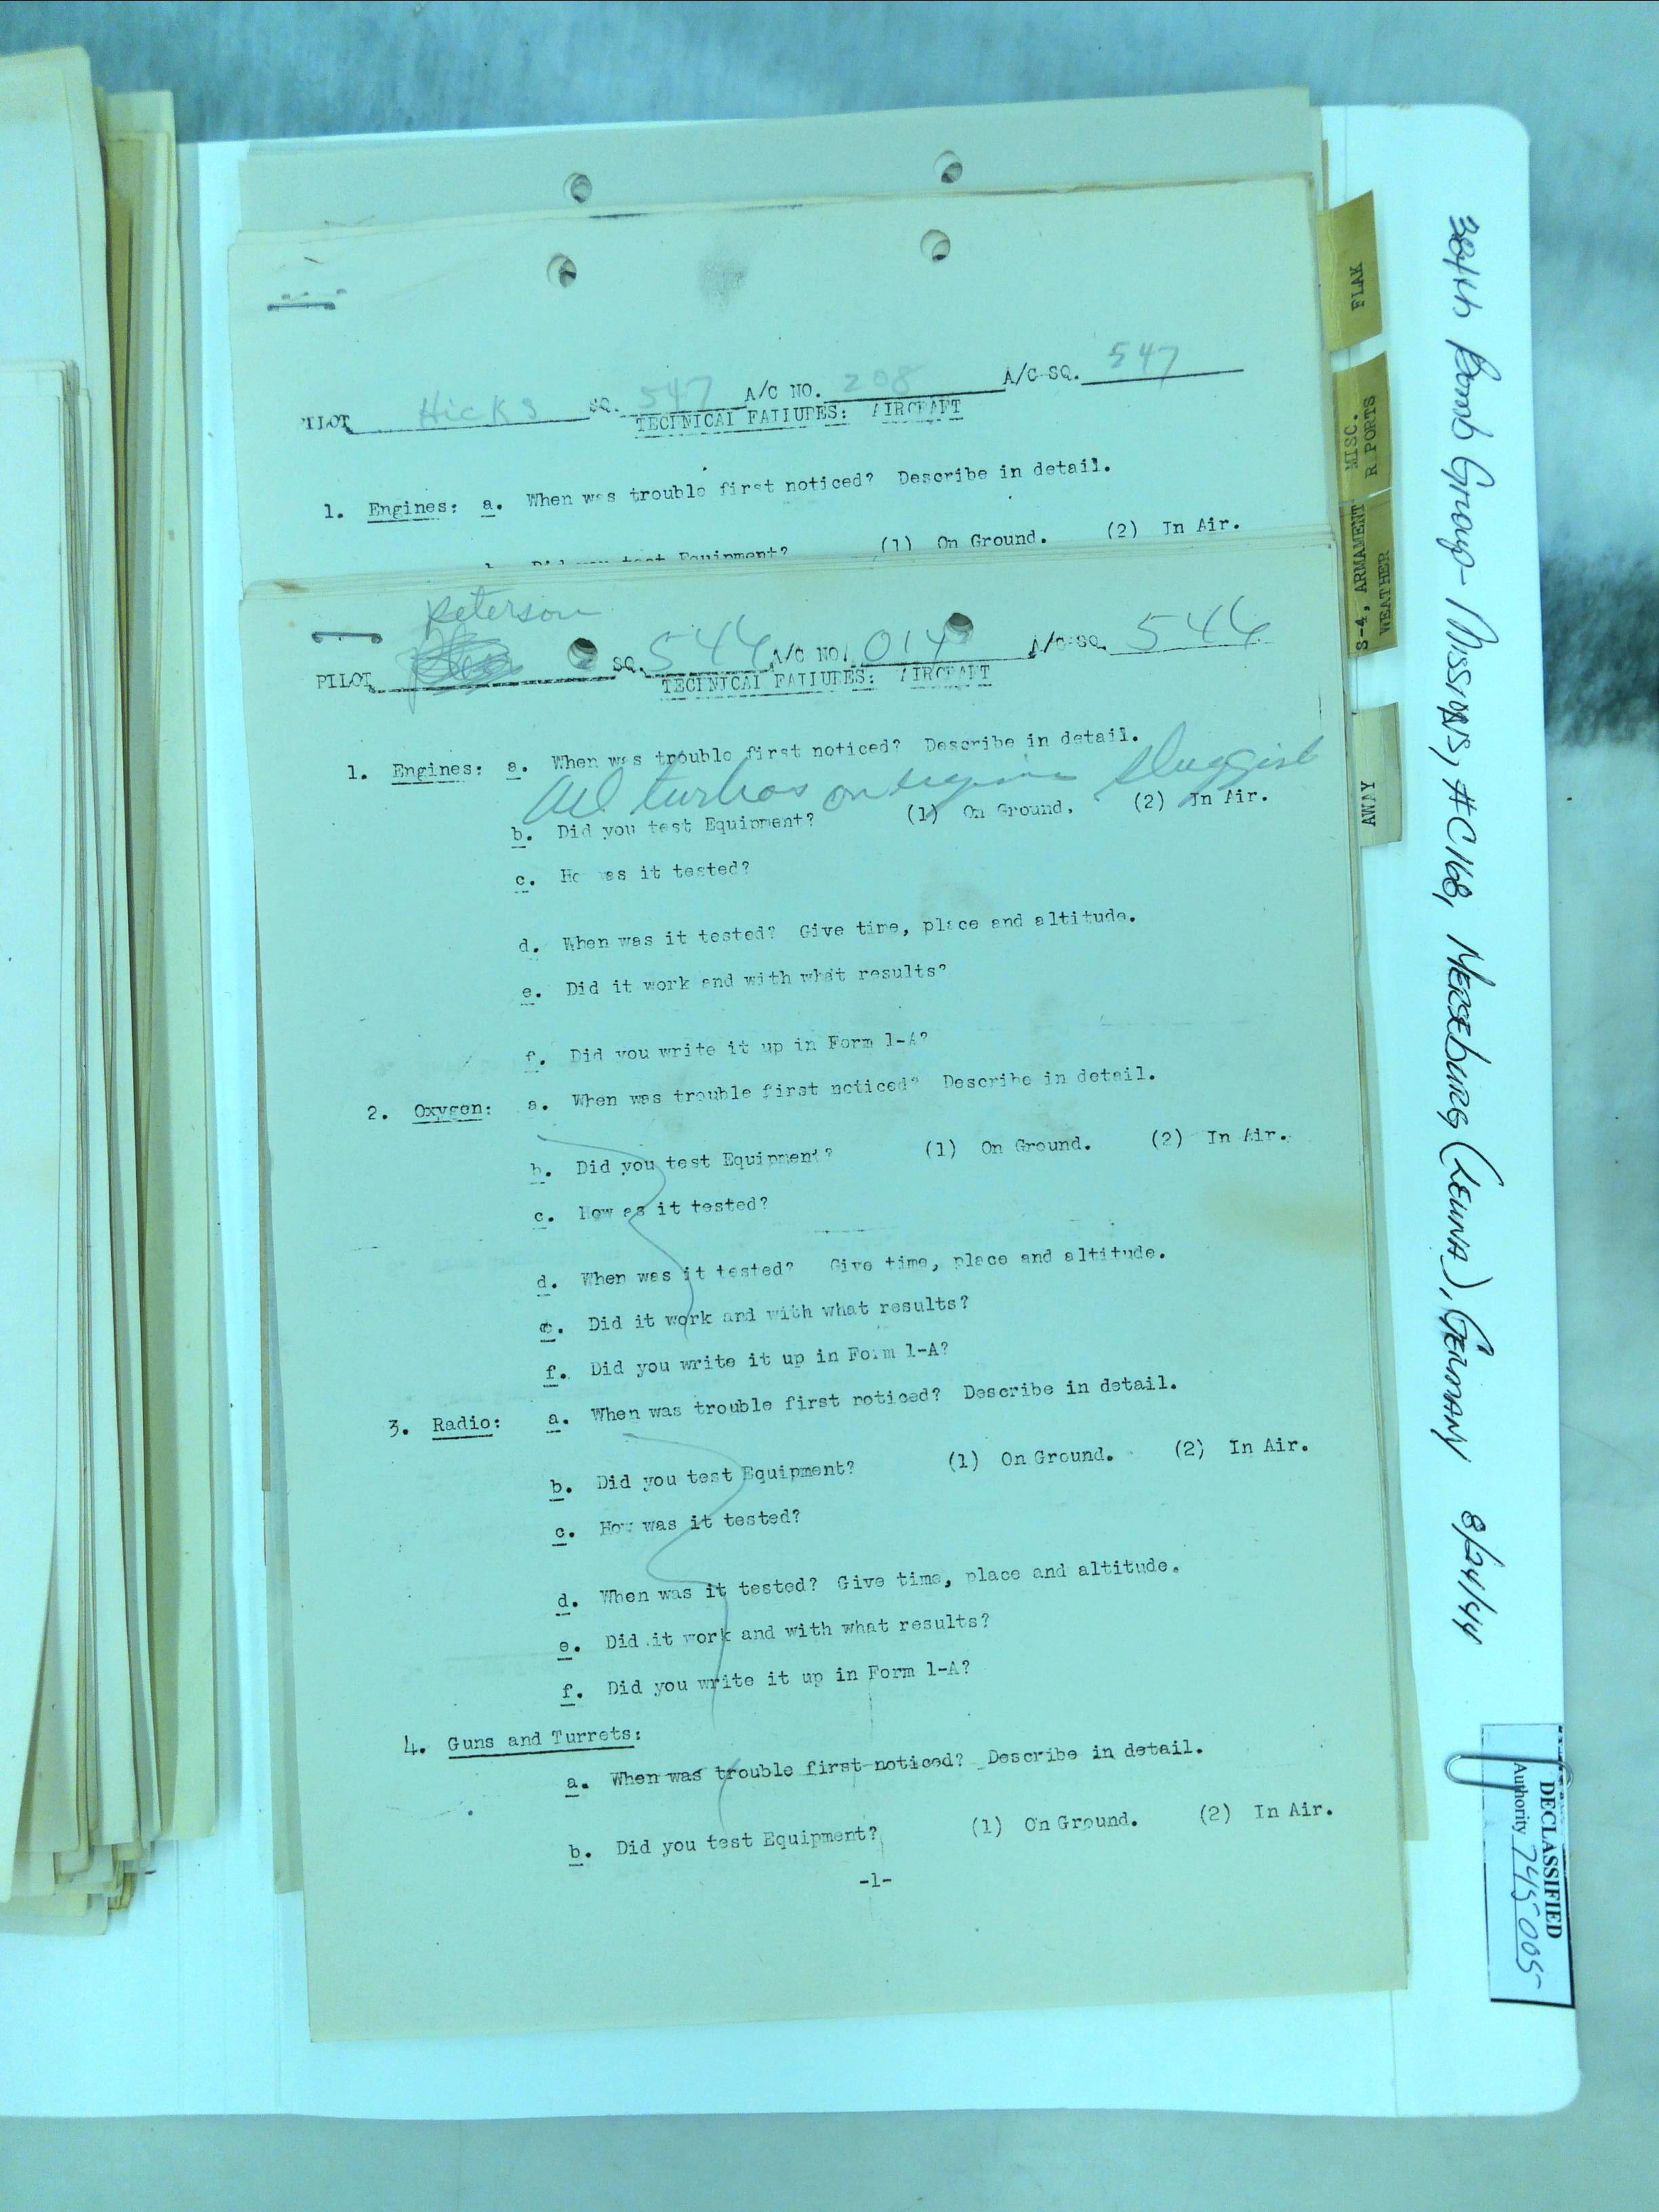 PILOT Hicks SQ. 547 A/C NO. 208 A/C SQ. 547
TECHNICAL FAILURES: AIRCRAFT
1. Engines: a. When was trouble first noticed? Describe in detail.
b. Did you test Equipment? (1) On Ground. (2) In Air.
Peterson
PILOT SQ. 544 A/C NO. 014 A/C SQ. 544
TECHNICAL FAILURES: AIRCRAFT
1. Engines: a. When was trouble first noticed? Describe in detail.
All turbos on engine sluggish
b. Did you test Equipment? (1) On Ground. (2) In Air.
c. How was it tested?
d. When was it tested? Give time, place and altitude.
e. Did it work and with what results?
f. Did you write it up in Form 1-A?
2. Oxygen: a. When was trouble first noticed? Describe in detail.
b. Did you test Equipment? (1) On Ground. (2) In Air.
c. How as it tested?
d. When was it tested? Give time, place and altitude.
e. Did it work and with what results?
f. Did you write it up in Form 1-A?
3. Radio: a. When was trouble first noticed? Describe in detail.
b. Did you test Equipment? (1) On Ground. (2) In Air.
c. How was it tested?
d. When was it tested? Give time, place and altitude.
e. Did it work and with what results?
f. Did you write it up in Form 1-A?
4. Guns and Turrets:
a. When was trouble first noticed? Describe in detail.
b. Did you test Equipment? (1) On Ground. (2) In Air.
-1-
FLAK
MISC.
R PORTS
S-4, ARMAMENT
WEATHER
AWAY
384th Bomb Group - Missions, #C168, Merseburg (Leuna), Germany 8/24/44
DECLASSIFIED
Authority 745005